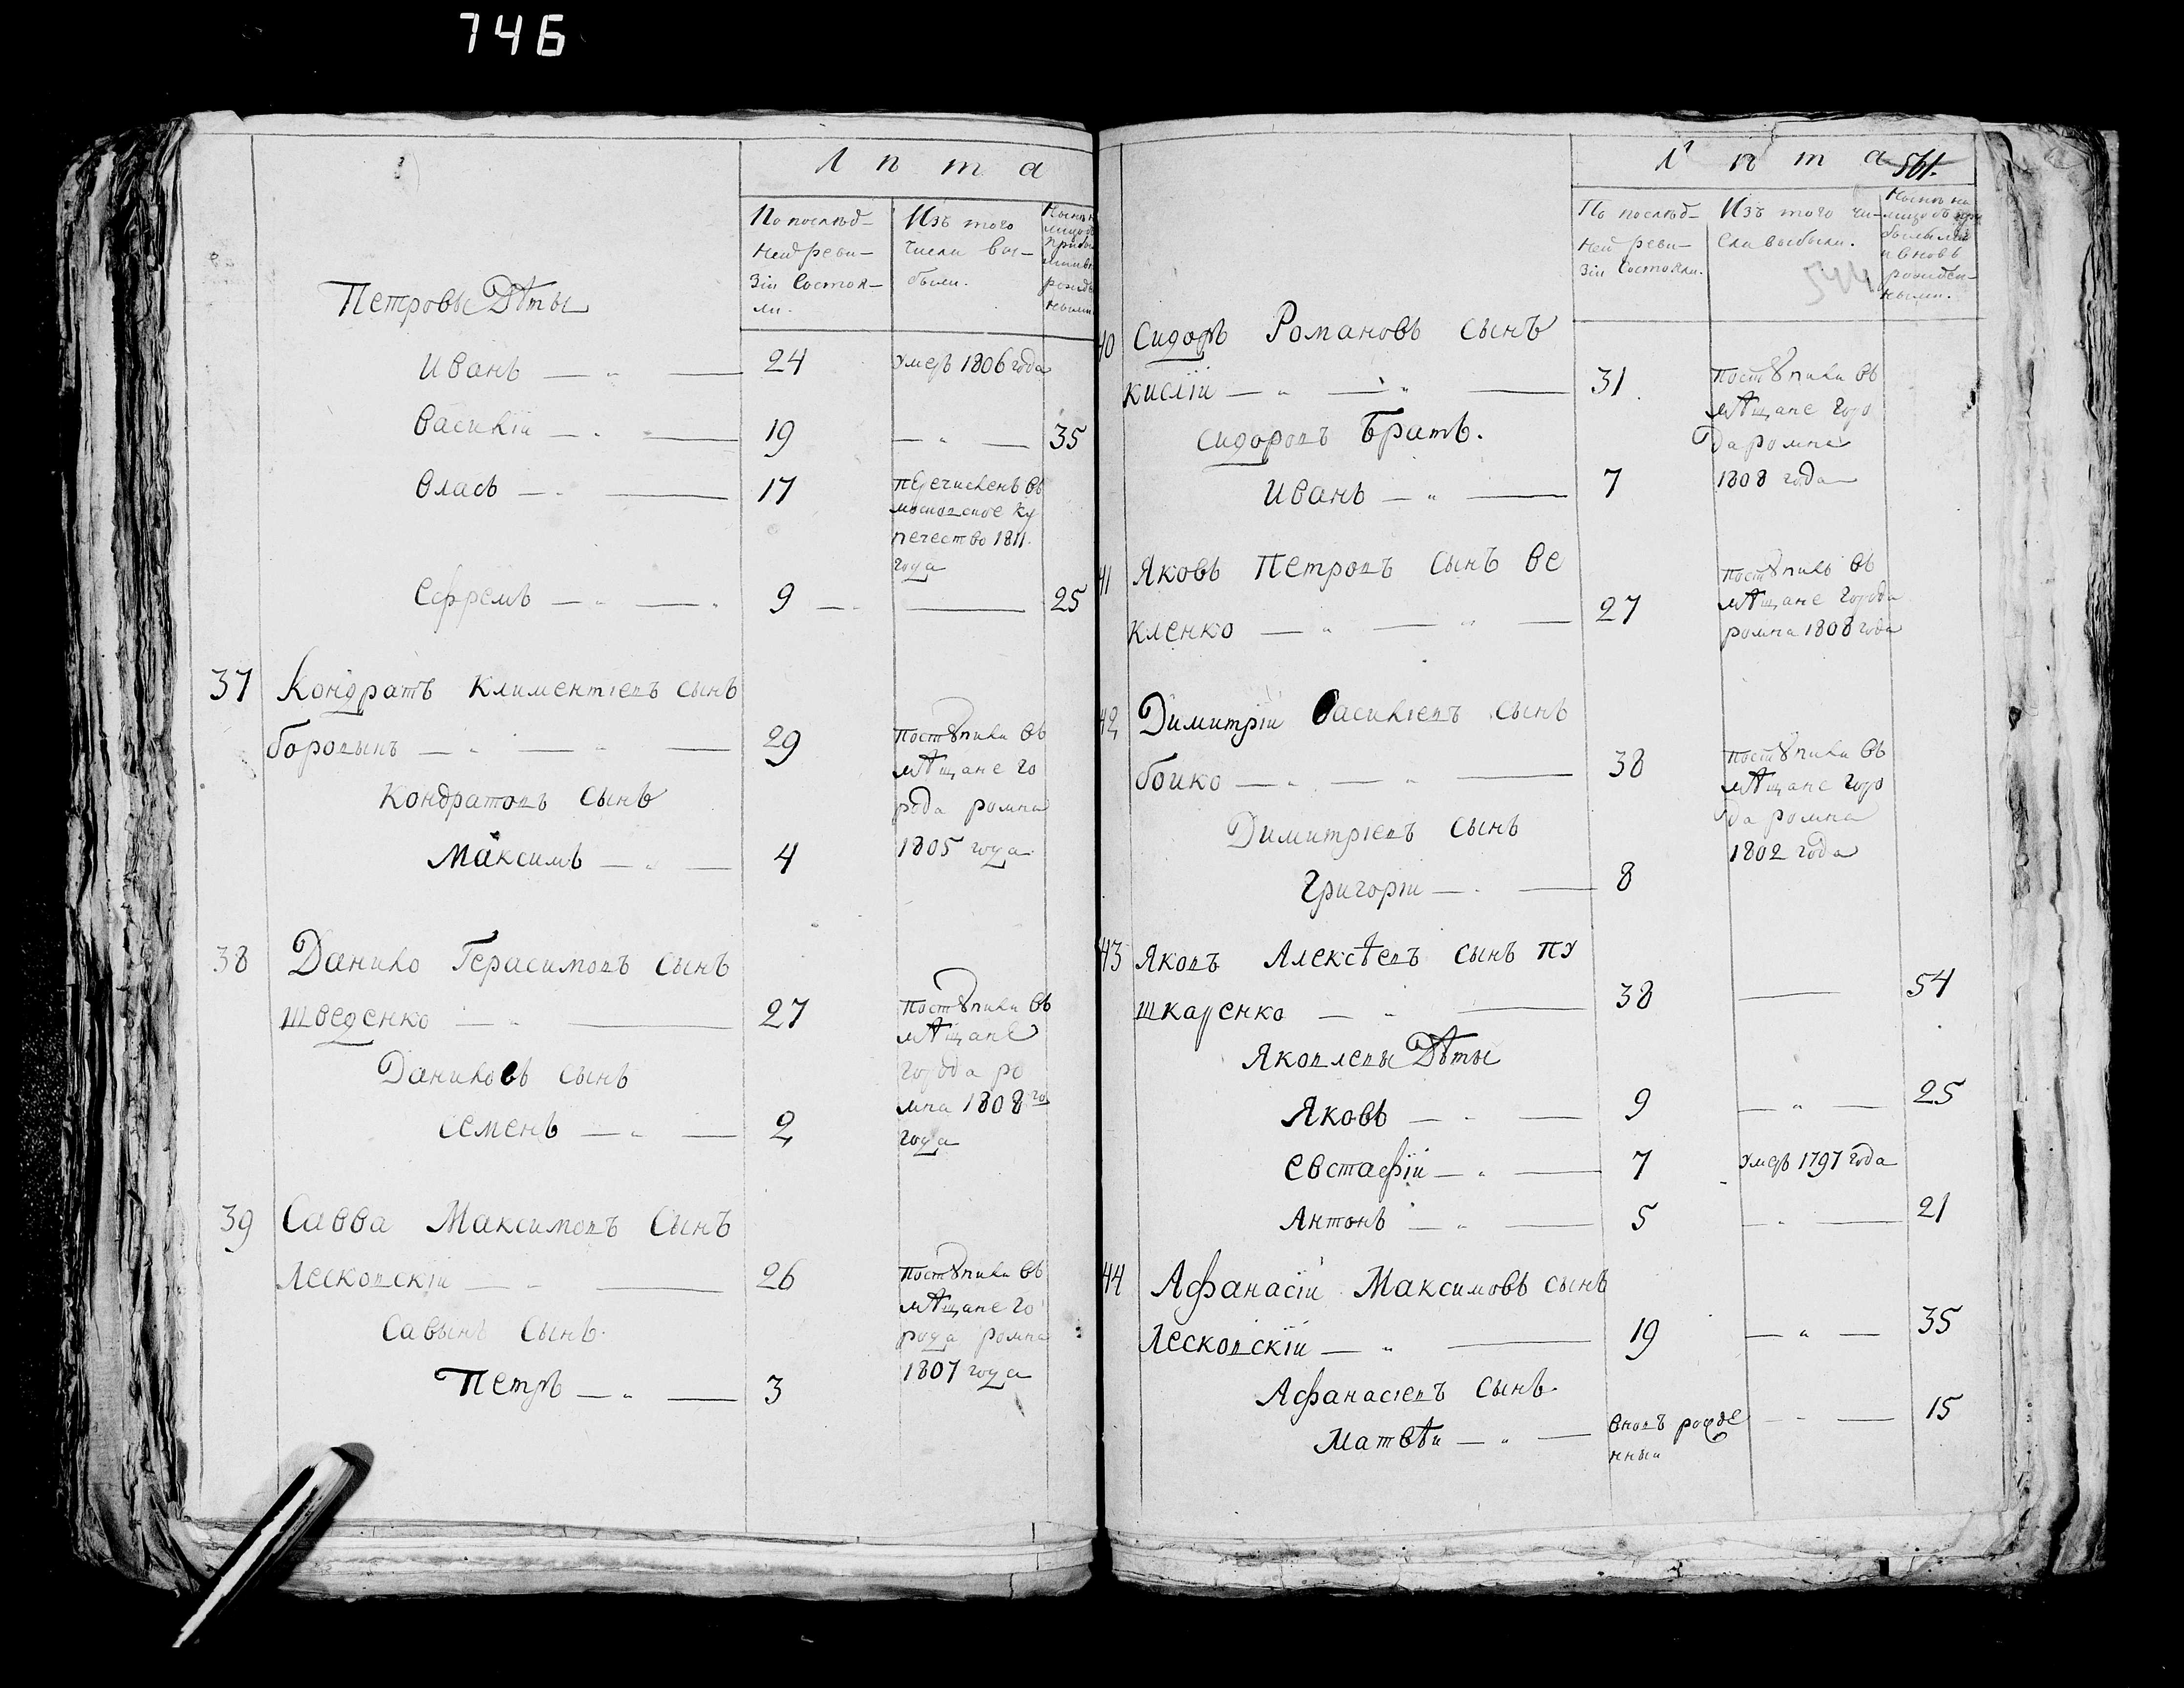 746
Лѣта
По послѣд-
ней реви-
зіи Состоя-
ли.
Изъ того
числа вы-
были.
Петровы Дѣты
Иванъ — „ — 24 умеръ 1806 года
Василій — „ — 19 — „ — 35
Власъ — „ — 17 перечисленъ въ
московское ку
печество 1811.
года
Ефремъ — „ — „ 9 — „ — 25
37 Кондратъ Климентіевъ сынъ
бородынъ — „ — „ — 29 поступили въ
мѣщане го
рода ромна
1805 года
Кондратовъ сынъ
Максимъ — „ — 4
38 Данило Герасимовъ сынъ
шведенко — „ — 27 поступили въ
мѣщане
города ро
мна 1808 го
года
Даниловъ сынъ
Семенъ — „ — 2
39 Савва Максимовъ Сынъ
Лесковскіи — „ — 26 поступили въ
мѣщане го
рода ромна
1807 года
Савынъ Сынъ.
Петръ — „ — 3
Лѣта
561.
По послѣд-
ней реви-
зіи Состояли.
Изъ того чи-
сла выбыли.
544
40 Сидоръ Романовъ сынъ
кислій — „ — „ — 31 поступили въ
мѣщане горо
да ромна
1808 года
Сидоровъ Братъ.
Иванъ — „ — 7
41 Яковъ Петровъ сынъ Ве
кленко — „ — „ — 27 поступилъ въ
мѣщане города
ромна 1808 года
42 Димитріи Василіевъ сынъ
боико — „ — „ — 38 поступили въ
мѣщане горо
да ромна
1802 года
Димитріевъ сынъ
Григоріи — „ — 8
43 Яковъ Алексѣевъ сынъ пу
шкаренко — „ — 38 — 54
Яковлевы Дѣты
Яковъ — „ — 9 — „ — 25
Евстафіи — „ — 7 умеръ 1797 года
Антонъ — „ — 5 — „ — 21
44 Афанасіи Максимовъ сынъ
Лесковскіи — „ — 19 — „ — 35
Афанасіевъ сынъ.
Матвѣи — „ — вновъ рожде
нныи — „ — 15